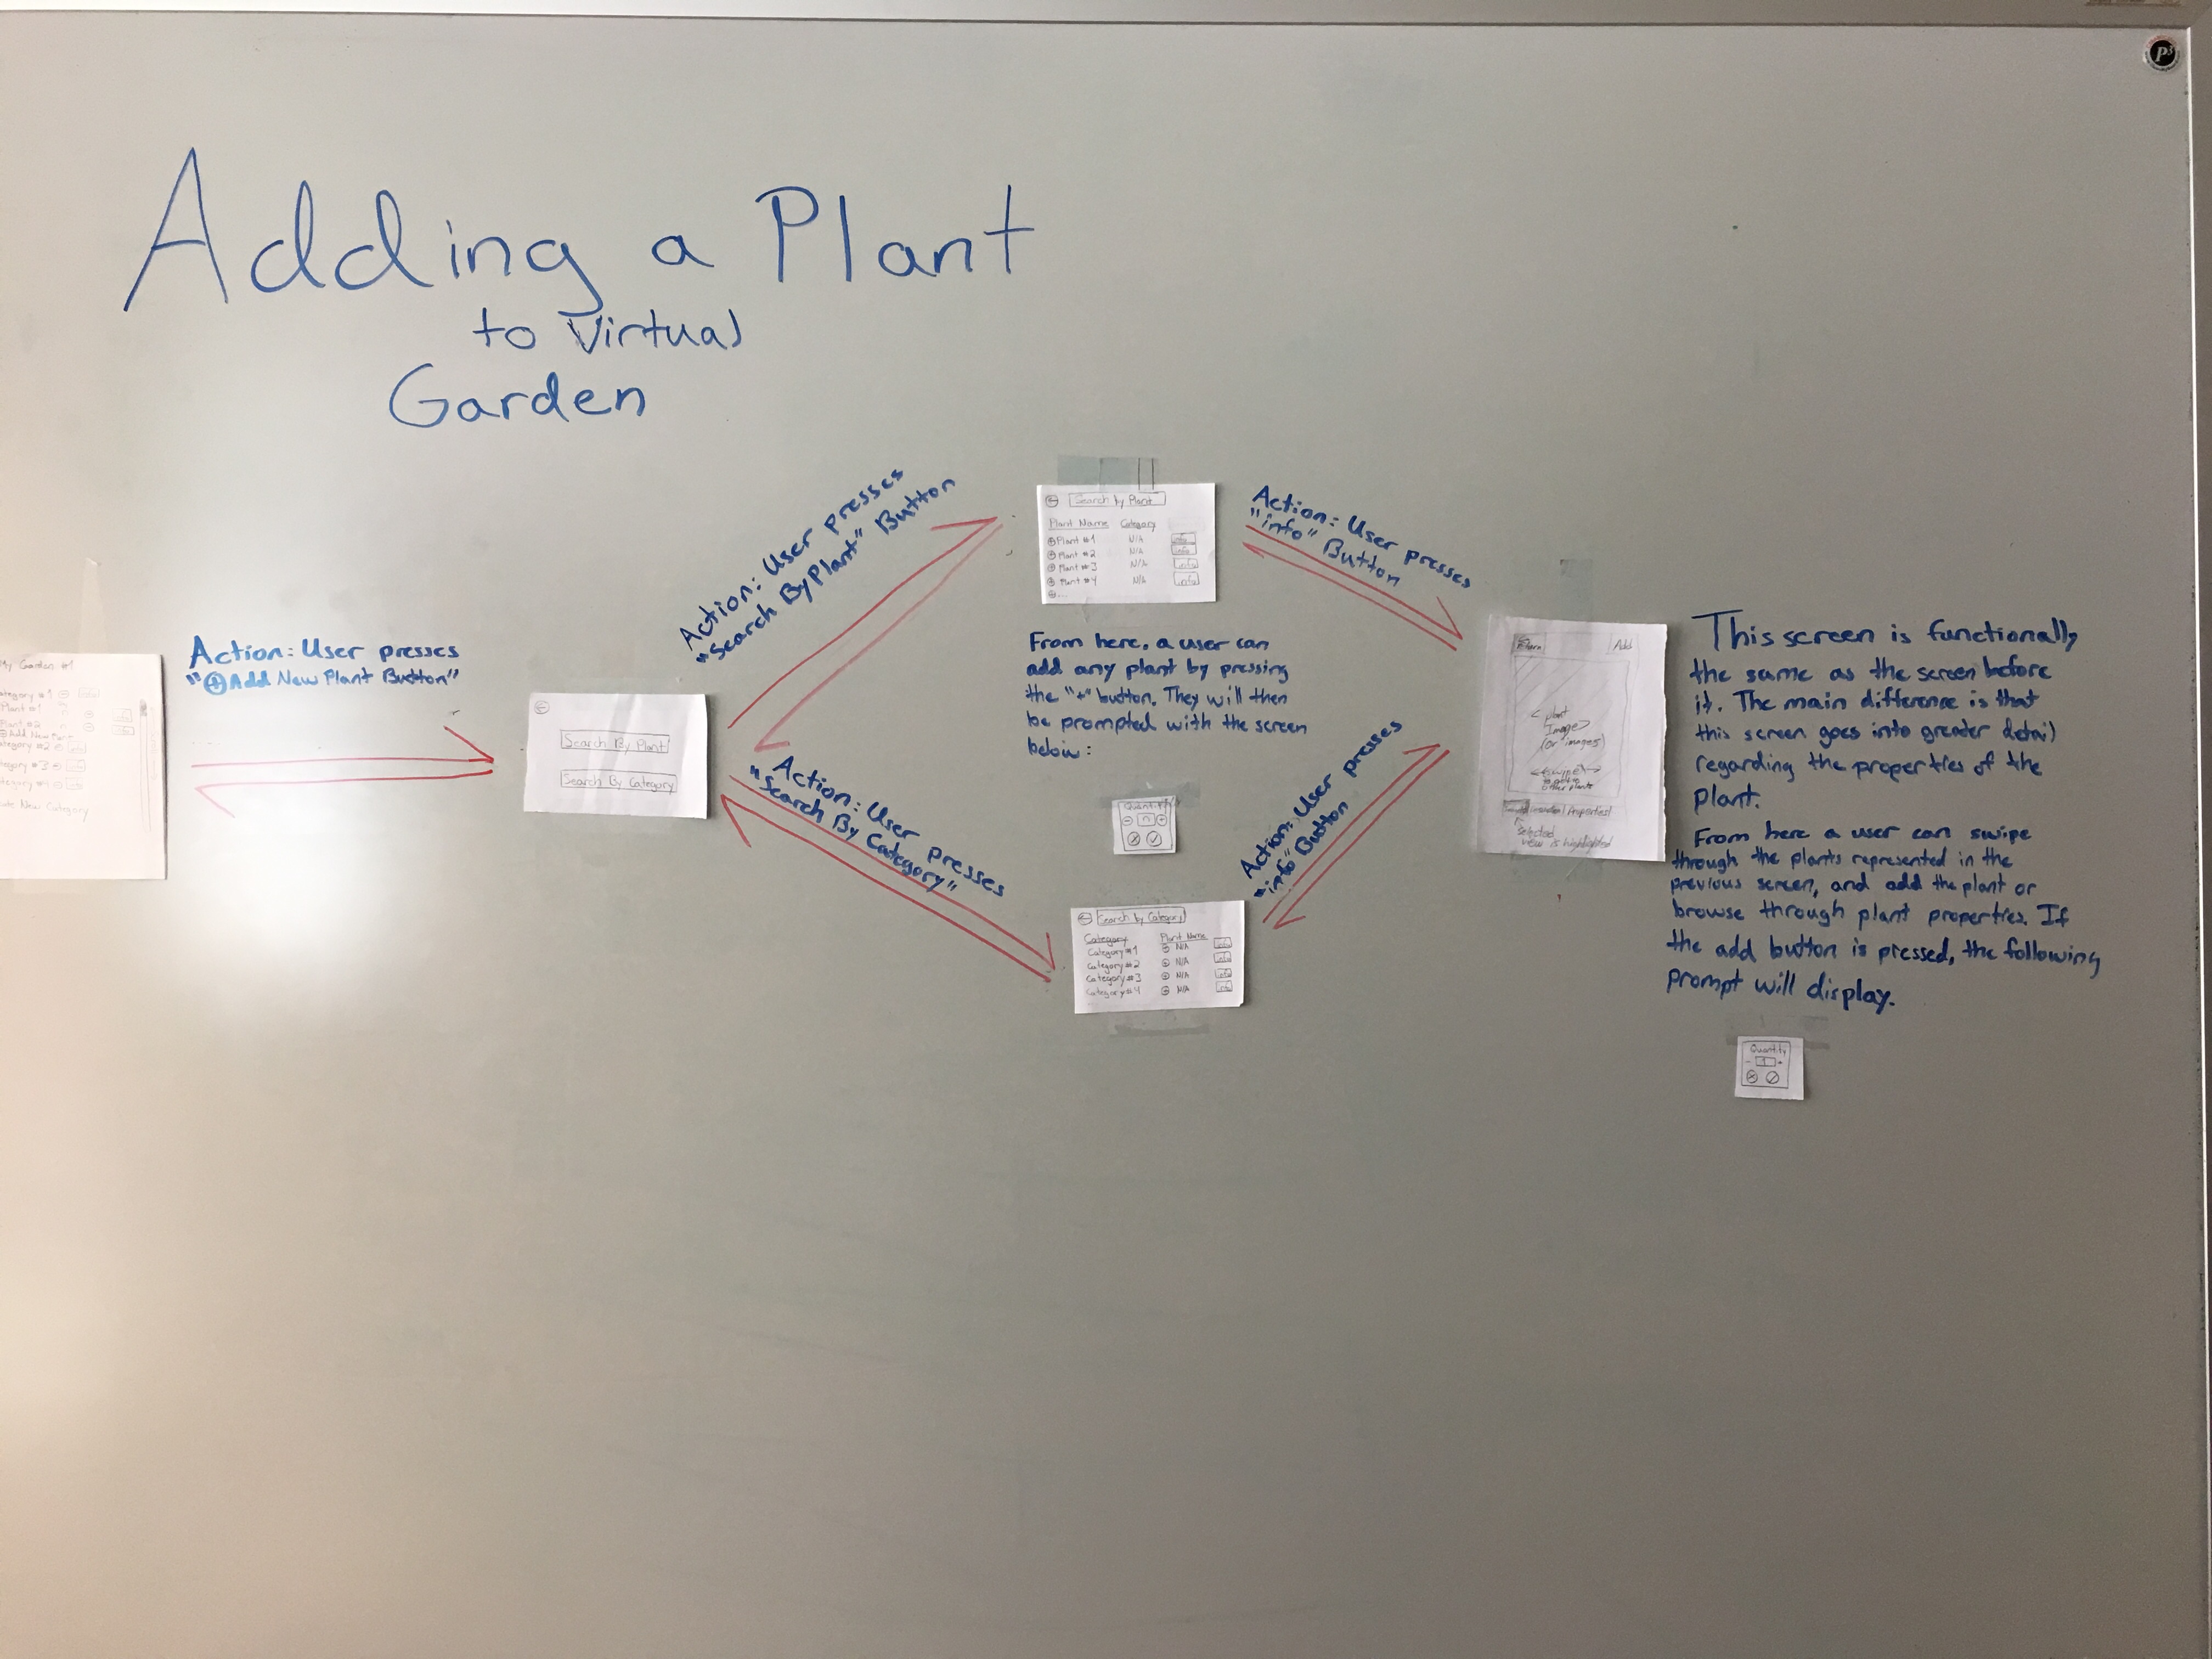 P³
Adding a Plant
to Virtual
Garden
My Garden #1
ategory #1
info
Plant #1
Plant #2
Add New Plant
ategory #2
info
tegory #3
info
tegory #4
info
New Category
Action: User presses
"⊕Add New Plant Button"
←
Search By Plant
Search By Category
Action: User presses
"Search By Plant" Button
Action: User presses
"Search By Category"
← Search by Plant
Plant Name Category
⊕ Plant #1 N/A info
⊕ Plant #2 N/A info
⊕ Plant #3 N/A info
⊕ Plant #4 N/A info
⊕ ...
From here, a user can
add any plant by pressing
the "+" button. They will then
be prompted with the screen
below:
Quantity
← Search by Category
Category Plant Name
Category #1 ⊕ N/A info
Category #2 ⊕ N/A info
Category #3 ⊕ N/A info
Category #4 ⊕ N/A info
Action: User presses
"info" Button
Action: User presses
"info" Button
Add
<plant
Image>
(or images)
<swipe>
other plants
Properties
selected
view is highlighted
This screen is functionally
the same as the screen before
it. The main difference is that
this screen goes into greater detail
regarding the properties of the
plant.
From here a user can swipe
through the plants represented in the
previous screen, and add the plant or
browse through plant properties. If
the add button is pressed, the following
prompt will display.
Quantity
- 1 +